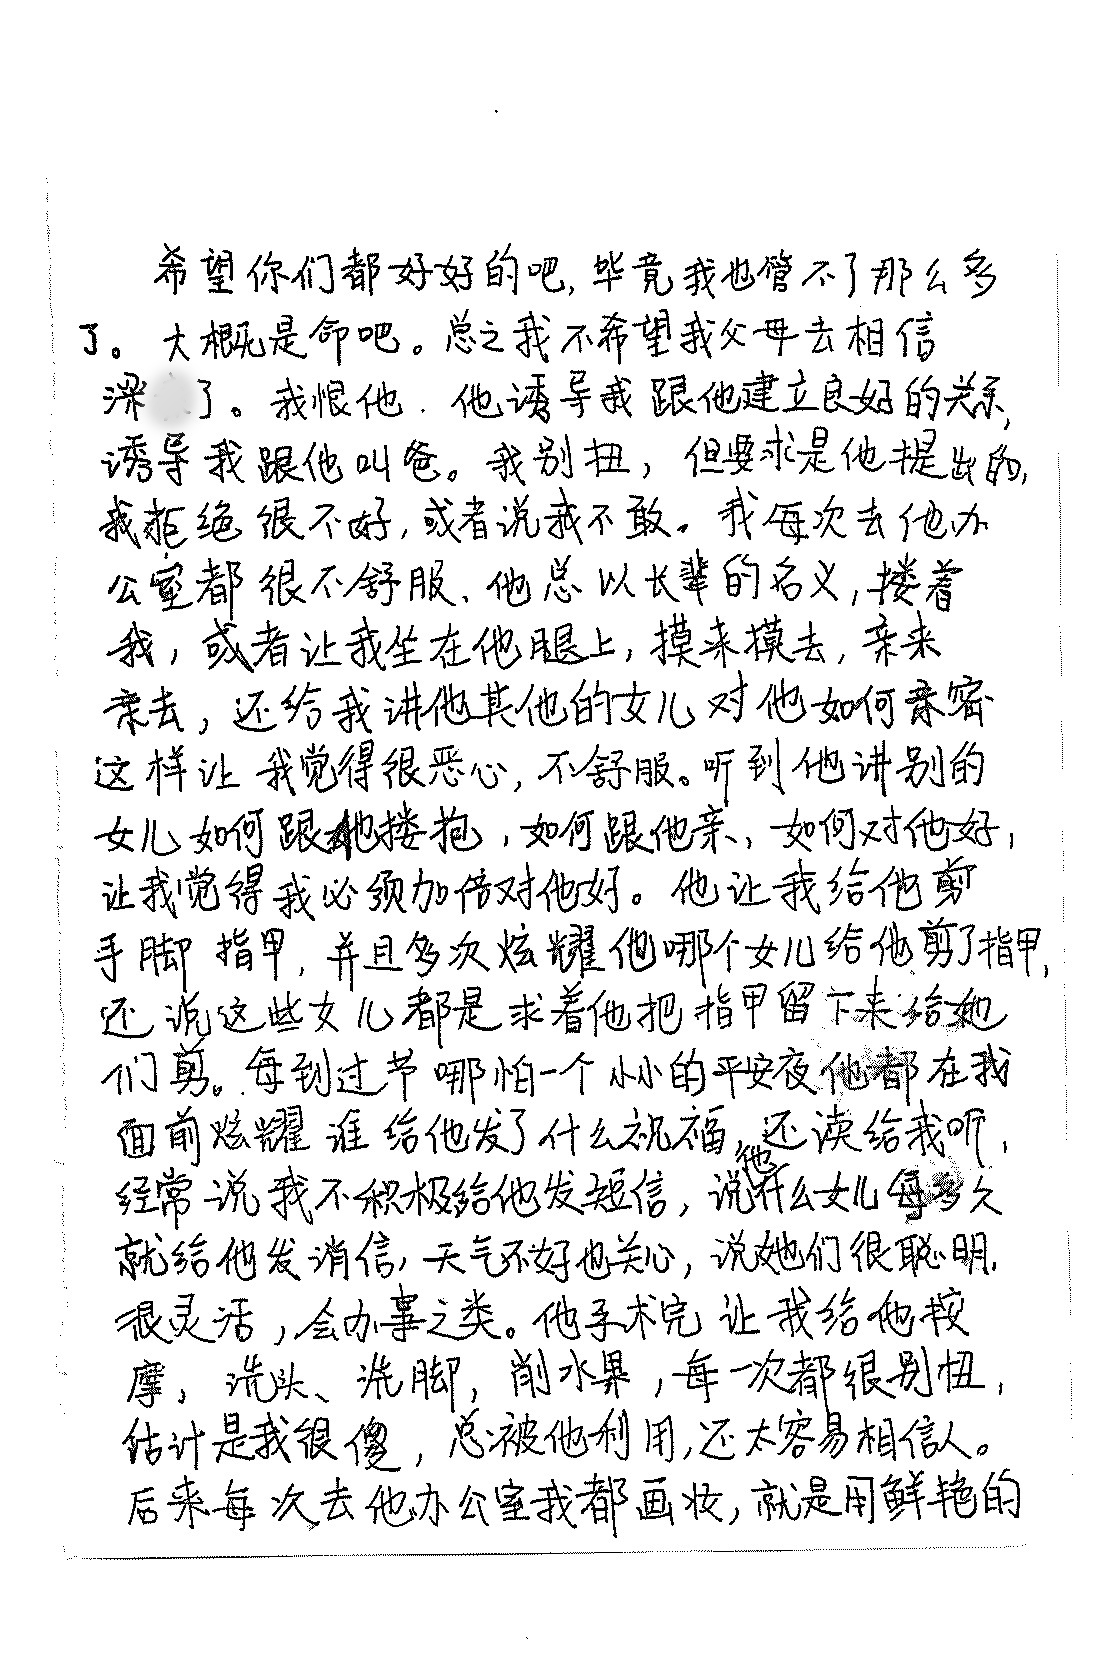 希望你们都好好的吧,毕竟我也管不了那么多
了。大概是命吧。总之我不希望我父母去相信
梁 了。我恨他.他诱导我跟他建立良好的关系,
诱导我跟他叫爸。我别扭,但要求是他提出的,
我拒绝很不好,或者说我不敢。我每次去他办
公室都很不舒服、他总以长辈的名义,搂着
我,或者让我坐在他腿上,摸来摸去,亲来
亲去,还给我讲他其他的女儿对他如何亲密
这样让我觉得很恶心,不舒服。听到他讲别的
女儿如何跟他搂抱,如何跟他亲、如何对他好,
让我觉得我必须加倍对他好。他让我给他剪
手脚指甲,并且多次炫耀他哪个女儿给他剪了指甲,
还说这些女儿都是求着他把指甲留下来给她
们剪。每到过节哪怕一个小小的平安夜他都在我
面前炫耀谁给他发了什么祝福,还读给我听,
经常说我不积极给他发短信,说他什么女儿每多久
就给他发消信,天气不好也关心,说她们很聪明,
很灵活,会办事之类。他手术完让我给他按
摩,洗头、洗脚,削水果,每一次都很别扭,
估计是我很傻,总被他利用,还太容易相信人。
后来每次去他办公室我都画妆,就是用鲜艳的